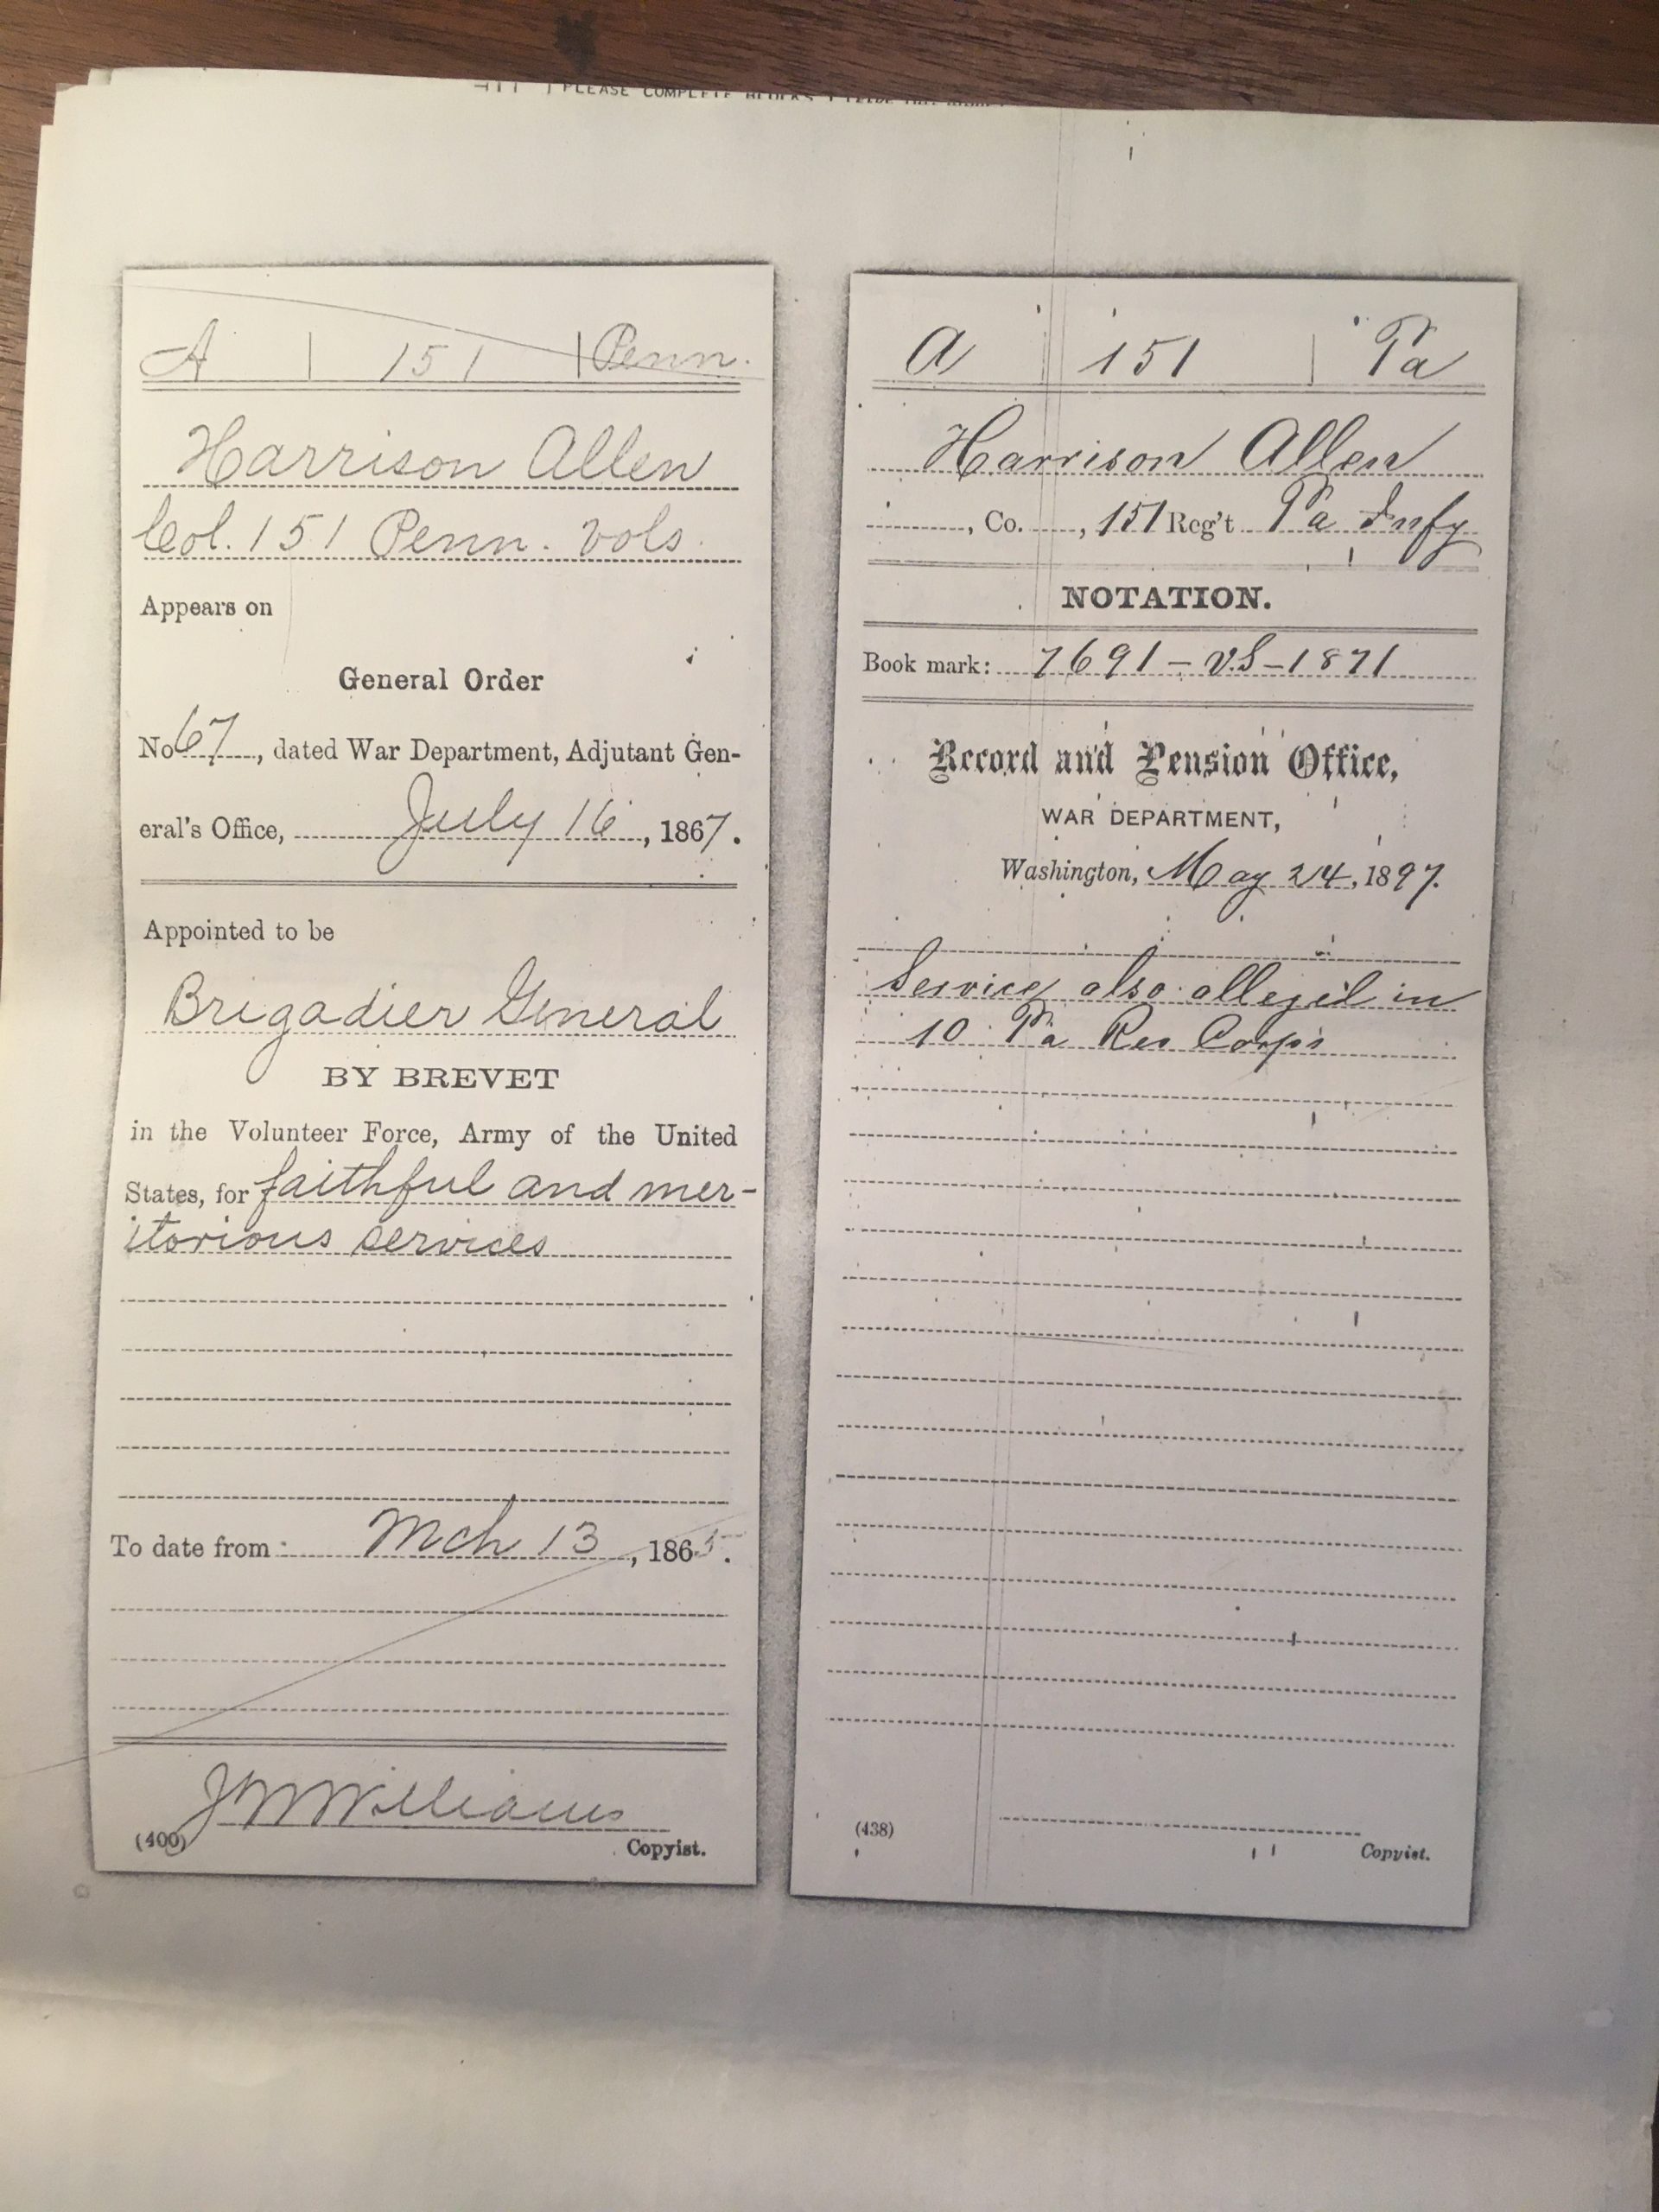 PLEASE COMPLETE
A | 151 | Penn.
Harrison Allen
Col. 151 Penn. Vols.
Appears on
General Order
No 67, dated War Department, Adjutant Gen-
eral's Office, July 16, 1867.
Appointed to be
Brigadier General
BY BREVET
in the Volunteer Force, Army of the United
States, for faithful and mer-
itorious services
To date from: Mch 13, 1865.
J M Williams
(400) Copyist.
A | 151 | Pa
Harrison Allen
, Co. , 151 Reg't Pa Infy
NOTATION.
Book mark: 7691-V.S-1871
Record and Pension Office,
WAR DEPARTMENT,
Washington, May 24, 1897.
Service also alleged in
10 Pa Res Corps
(438) Copyist.